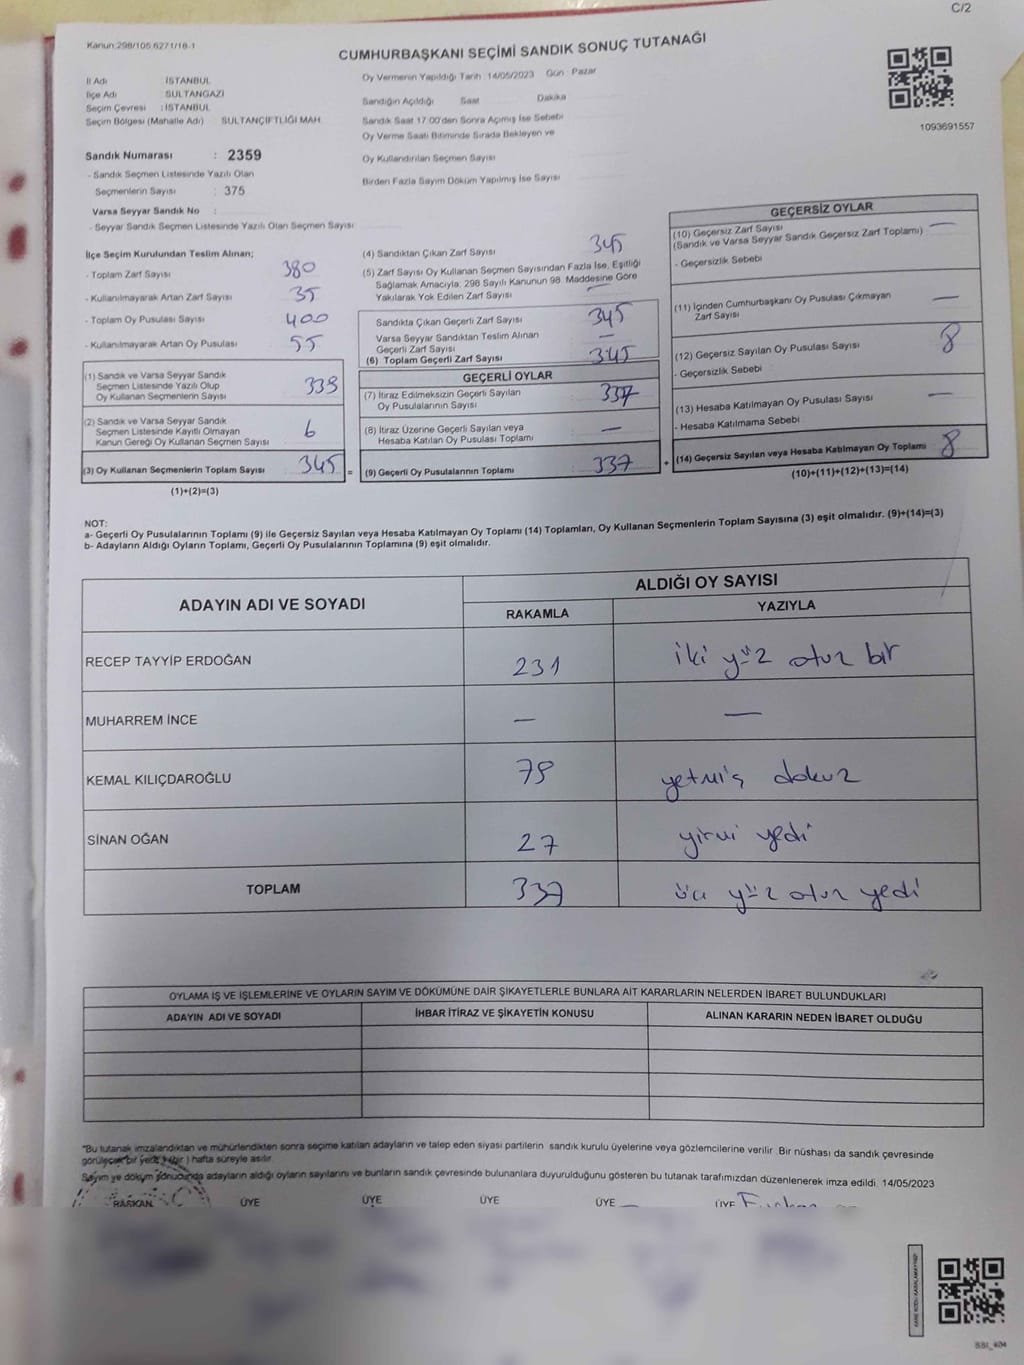 C/2
Kanun:298/105,6271/18-1
CUMHURBAŞKANI SEÇİMİ SANDIK SONUÇ TUTANAĞI
1093691557
İl Adı İSTANBUL
İlçe Adı SULTANGAZİ
Seçim Çevresi : İSTANBUL
Seçim Bölgesi (Mahalle Adı) SULTANÇİFTLİĞİ MAH.
Sandık Numarası : 2359
- Sandık Seçmen Listesinde Yazılı Olan
Seçmenlerin Sayısı : 375
Varsa Seyyar Sandık No :
- Seyyar Sandık Seçmen Listesinde Yazılı Olan Seçmen Sayısı
Oy Vermenin Yapıldığı Tarih : 14/05/2023 Gün : Pazar
Sandığın Açıldığı Saat Dakika
Sandık Saat 17:00'den Sonra Açmış İse Sebebi
Oy Verme Saati Bitiminde Sırada Bekleyen ve
Oy Kullandırılan Seçmen Sayısı
Birden Fazla Sayım Döküm Yapılmış İse Sayısı
İlçe Seçim Kurulundan Teslim Alınan;
- Toplam Zarf Sayısı 380
- Kullanılmayarak Artan Zarf Sayısı 35
- Toplam Oy Pusulası Sayısı 400
- Kullanılmayarak Artan Oy Pusulası 55
(1) Sandık ve Varsa Seyyar Sandık
Seçmen Listesinde Yazılı Olup
Oy Kullanan Seçmenlerin Sayısı 339
(2) Sandık ve Varsa Seyyar Sandık
Seçmen Listesinde Kayıtlı Olmayan
Kanun Gereği Oy Kullanan Seçmen Sayısı 6
(3) Oy Kullanan Seçmenlerin Toplam Sayısı 345 =
(1)+(2)=(3)
(4) Sandıktan Çıkan Zarf Sayısı 345
(5) Zarf Sayısı Oy Kullanan Seçmen Sayısından Fazla İse, Eşitliği
Sağlamak Amacıyla, 298 Sayılı Kanunun 98. Maddesine Göre
Yakılarak Yok Edilen Zarf Sayısı —
Sandıkta Çıkan Geçerli Zarf Sayısı 345
Varsa Seyyar Sandıktan Teslim Alınan
Geçerli Zarf Sayısı —
(6) Toplam Geçerli Zarf Sayısı 345
GEÇERLİ OYLAR
(7) İtiraz Edilmeksizin Geçerli Sayılan
Oy Pusulalarının Sayısı 337
(8) İtiraz Üzerine Geçerli Sayılan veya
Hesaba Katılan Oy Pusulası Toplamı —
(9) Geçerli Oy Pusulalarının Toplamı 337 +
GEÇERSİZ OYLAR
(10) Geçersiz Zarf Sayısı —
(Sandık ve Varsa Seyyar Sandık Geçersiz Zarf Toplamı)
- Geçersizlik Sebebi
(11) İçinden Cumhurbaşkanı Oy Pusulası Çıkmayan
Zarf Sayısı —
(12) Geçersiz Sayılan Oy Pusulası Sayısı 8
- Geçersizlik Sebebi
(13) Hesaba Katılmayan Oy Pusulası Sayısı —
- Hesaba Katılmama Sebebi
(14) Geçersiz Sayılan veya Hesaba Katılmayan Oy Toplamı 8
(10)+(11)+(12)+(13)=(14)
NOT:
a- Geçerli Oy Pusulalarının Toplamı (9) ile Geçersiz Sayılan veya Hesaba Katılmayan Oy Toplamı (14) Toplamları, Oy Kullanan Seçmenlerin Toplam Sayısına (3) eşit olmalıdır. (9)+(14)=(3)
b- Adayların Aldığı Oyların Toplamı, Geçerli Oy Pusulalarının Toplamına (9) eşit olmalıdır.
ADAYIN ADI VE SOYADI ALDIĞI OY SAYISI
RAKAMLA YAZIYLA
RECEP TAYYİP ERDOĞAN 231 iki yüz otuz bir
MUHARREM İNCE — —
KEMAL KILIÇDAROĞLU 79 yetmiş dokuz
SİNAN OĞAN 27 yirmi yedi
TOPLAM 337 üç yüz otuz yedi
OYLAMA İŞ VE İŞLEMLERİNE VE OYLARIN SAYIM VE DÖKÜMÜNE DAİR ŞİKAYETLERLE BUNLARA AİT KARARLARIN NELERDEN İBARET BULUNDUKLARI
ADAYIN ADI VE SOYADI İHBAR İTİRAZ VE ŞİKAYETİN KONUSU ALINAN KARARIN NEDEN İBARET OLDUĞU
*Bu tutanak imzalandıktan ve mühürlendikten sonra seçime katılan adayların ve talep eden siyasi partilerin sandık kurulu üyelerine veya gözlemcilerine verilir. Bir nüshası da sandık çevresinde
görülecek bir yere 1 (bir ) hafta süreyle asılır.
Sayım ve döküm sonucunda adayların aldığı oyların sayılarını ve bunların sandık çevresinde bulunanlara duyurulduğunu gösteren bu tutanak tarafımızdan düzenlenerek imza edildi. 14/05/2023
BAŞKAN ÜYE ÜYE ÜYE ÜYE ÜYE